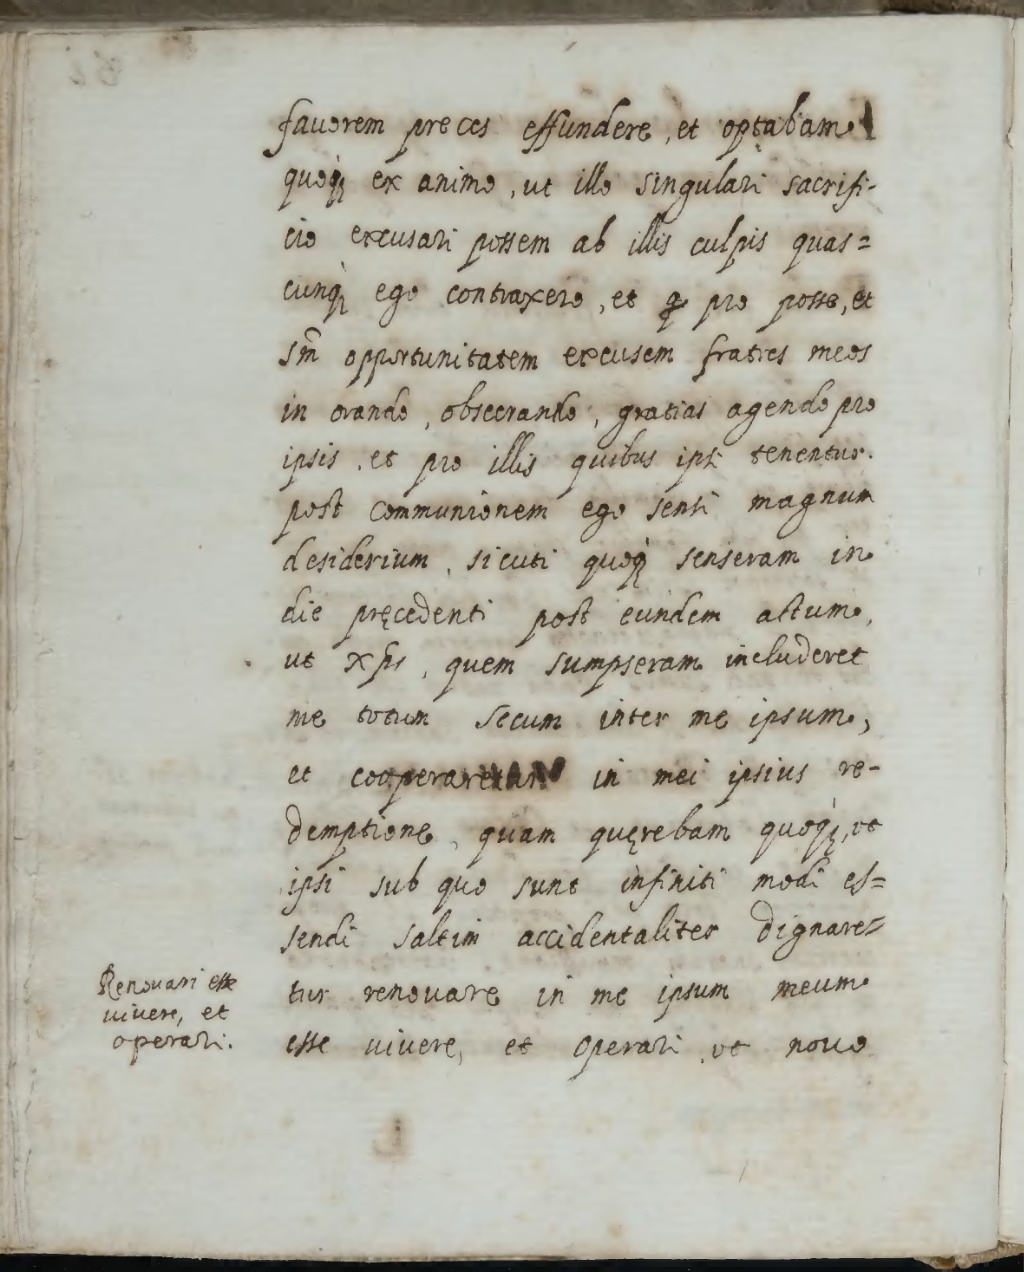 fauorem preces effundere, et optabam
quoq; ex animo, ut illo singulari sacrifi-
cio excusari possem ab illis culpis quas=
cunq; ego contraxero, et pro posse, et
sm̃ opportunitatem excusem fratres meos
in orando, obsecrando, gratias agendo pro
ipsis, et pro illis quibus ipsi tenentur.
post communionem ego sensi magnum
desiderium, sicuti quoq; senseram in
die pręcedenti post eundem actum,
ut xp̃s, quem sumpseram includeret
me totum secum inter me ipsum,
et cooperaretur in mei ipsius re-
demptione, quam quęrebam quoq;, ut
ipsi sub quo sunt infiniti modi es=
sendi saltim accidentaliter dignare=
tur renouare in me ipsum meum
esse uiuere, et operari, ut nouo
Renouari esse
uiuere, et
operari.